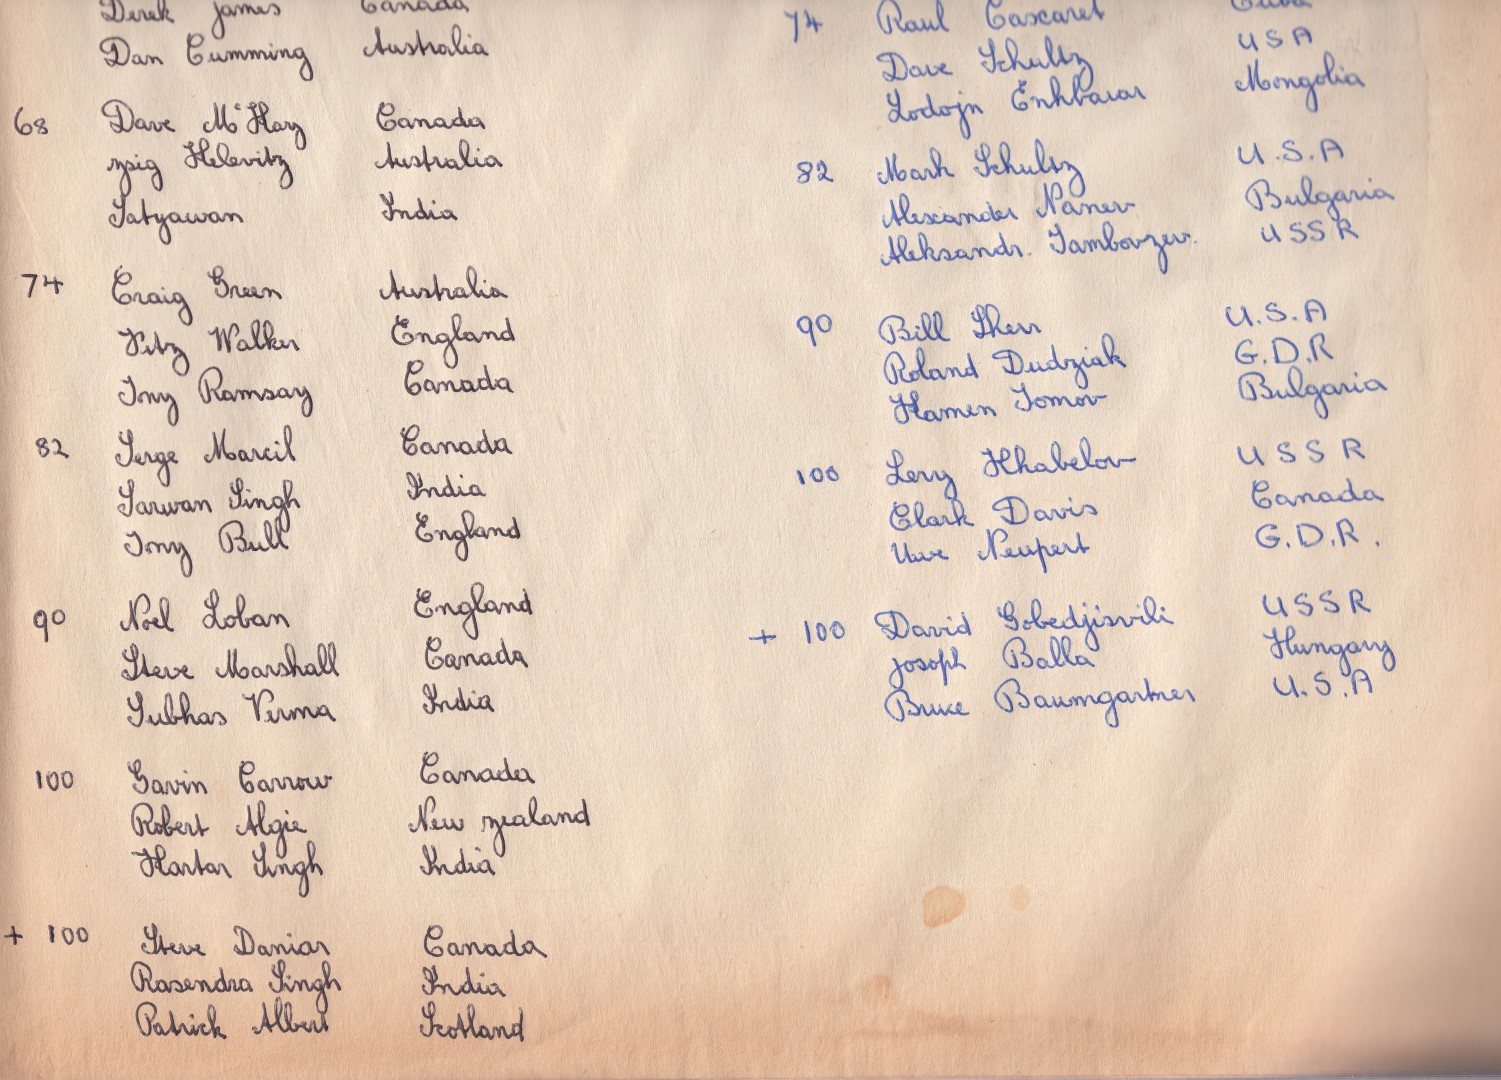 Derek James Canada
Dan Cumming Australia
68 Dave McKay Canada
Zsig Kelevitz Australia
Satyawan India
74 Craig Green Australia
Fitz Walker England
Tony Ramsay Canada
82 Serge Marcil Canada
Sarwan Singh India
Tony Bull England
90 Noel Loban England
Steve Marshall Canada
Subhas Verma India
100 Gavin Carrow Canada
Robert Algie New Zealand
Kartar Singh India
+ 100 Steve Daniar Canada
Rasendra Singh India
Patrick Albert Scotland
74 Raul Cascaret Cuba
Dave Schultz USA
Lodojn Enkbaiar Mongolia
82 Mark Schultz U.S.A
Alexander Nanev Bulgaria
Aleksandr. Tambovzev. USSR
90 Bill Sherr U.S.A
Roland Dudziak G.D.R
Kamen Tomov Bulgaria
100 Lery Khabelov USSR
Clark Davis Canada
Uwe Neupert G.D.R.
+ 100 David Gobedjisvili USSR
Josoph Balla Hungary
Bruce Baumgartner U.S.A